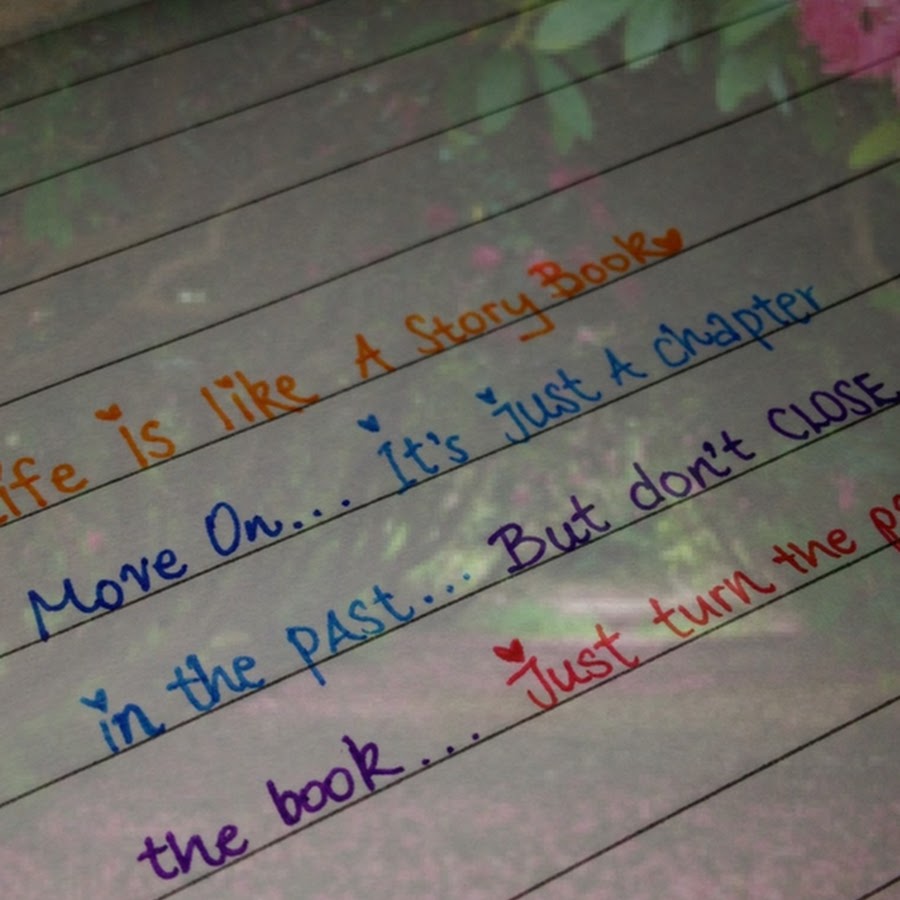 ife is like A Story Book
Move On... It's just A chapter
in the PAST... But don't CLOSE
the book... Just turn the pa